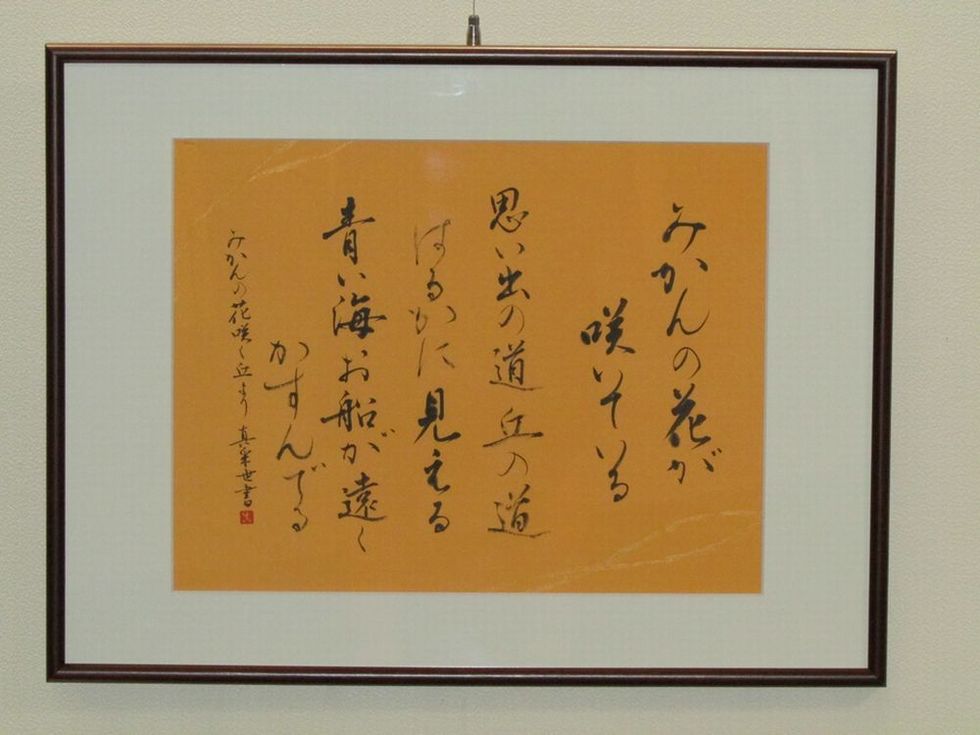 みかんの花が
咲いている
思い出の道丘の道
はるかに見える
青い海お船が遠く
かすんでる
みかんの花咲く丘より 真采世書